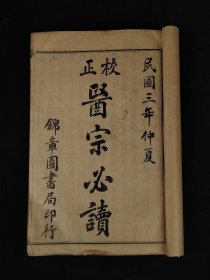 民國三年仲夏
校正
醫宗必讀
錦章圖書局印行